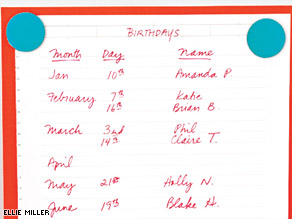 BIRTHDAYS
Month Day Name
Jan 10th Amanda P.
February 7th Katie
16th Brian B.
March 3rd Phil
14th Claire T.
April
May 21st Holly N.
June 19th Blake H.
ELLIE MILLER